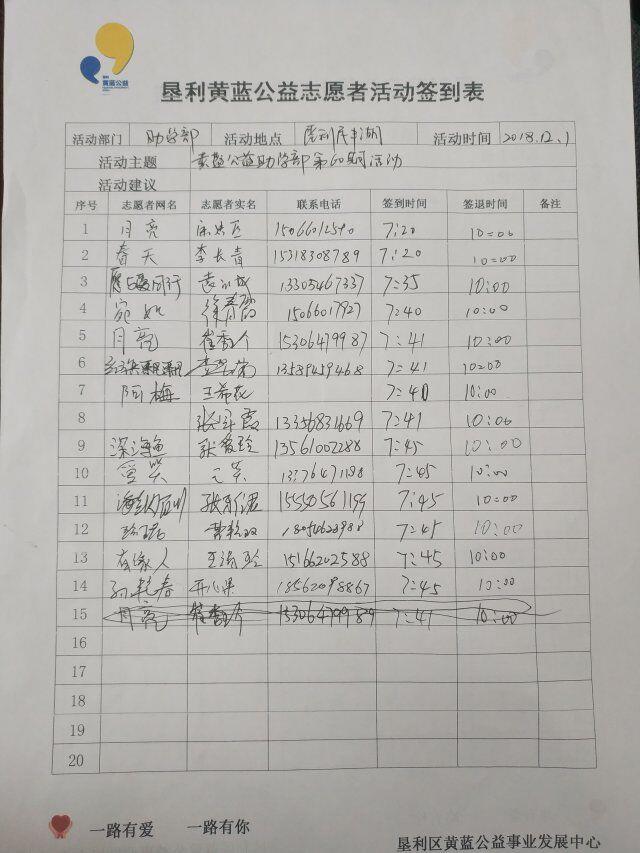 黄蓝公益
垦利黄蓝公益志愿者活动签到表
活动部门 助学部 活动地点 垦利民丰湖 活动时间 2018.12.1
活动主题 黄蓝公益助学部第60期活动
活动建议
序号 志愿者网名 志愿者实名 联系电话 签到时间 签退时间 备注
1 月亮 7:20 10:00
2 春天 李长青 15318308789 7:20 10:00
3 13305467337 7:35 10:00
4 宛如 15066017927 7:40 10:00
5 月亮 15306479987 7:41 10:00
6 13589459468 7:41 10:00
7 阿梅 王希花 7:40 10:00
8 张泽霞 13356831669 7:41 10:00
9 深海鱼 13561002288 7:45 10:00
10 7:45 10:00
11 7:45 10:00
12 7:45 10:00
13 有缘人 15166202588 7:45 10:00
14 孙艳春 开心果 18562098867 7:45 10:00
15 月亮 7:41 10:00
16
17
18
19
20
一路有爱 一路有你
垦利区黄蓝公益事业发展中心